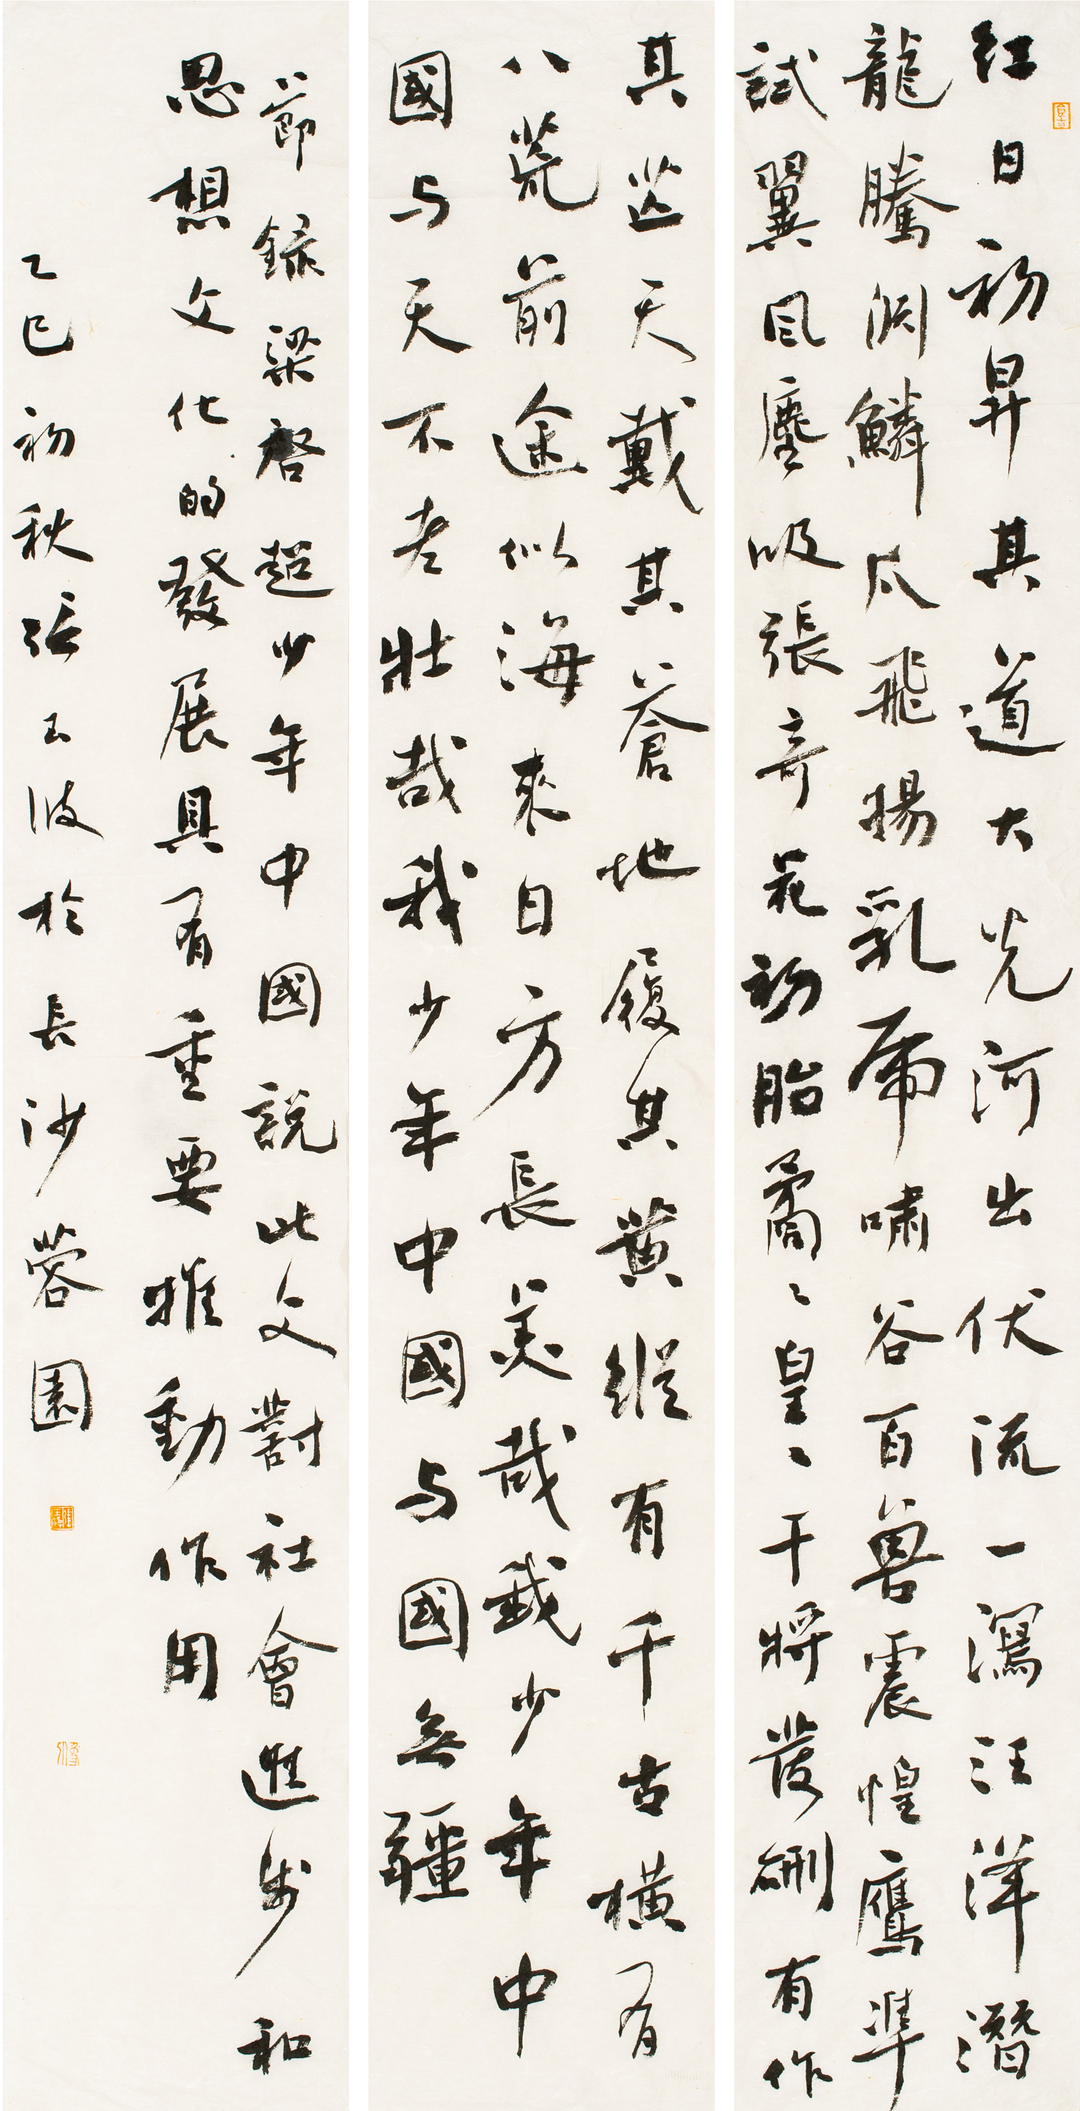 红日初昇其道大光河出伏流一瀉汪洋潛
龍騰渊鱗爪飛揚乳虎啸谷百兽震惶鷹準
試翼風塵吸張奇花初胎矞〻皇〻干將發硎有作
其芒天戴其蒼地履其黄縱有千古横有
八荒前途似海來日方長美哉我少年中
國与天不老壯哉我少年中國与國無疆
節録梁啓超少年中國説此文對社會進步和
思想文化的發展具有重要推動作用
乙巳初秋張玉波於長沙蓉園